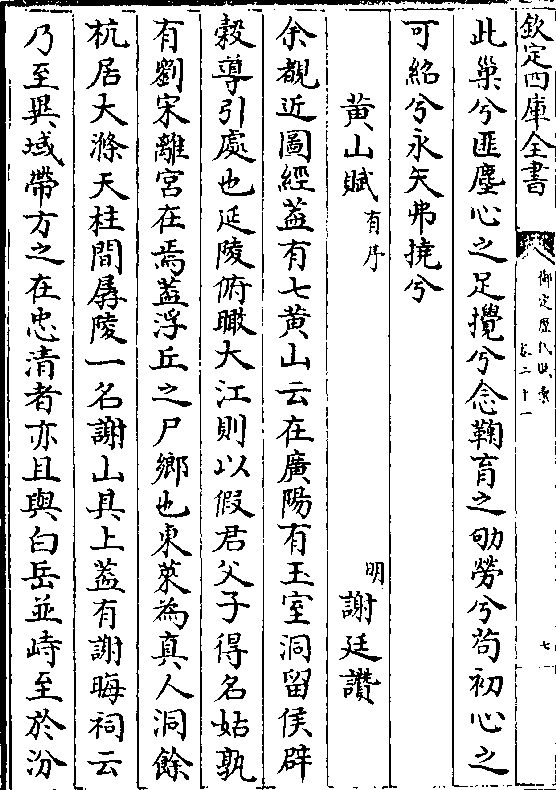 欽定四庫全書
御定歷代賦彙
卷二十一
七
此巢兮匪塵心之足攪兮念鞠育之劬勞兮苟初心之
可紹兮永矢弗撓兮
黃山賦 有序 明 謝廷讚
余覩近圖經蓋有七黃山云在廣陽有玉室洞留侯辟
穀導引處也延陵俯瞰大江則以假君父子得名姑孰
有劉宋離宮在焉蓋浮丘之尸鄉也東萊為真人洞餘
杭居大滌天柱間孱陵一名謝山具上蓋有謝晦祠云
乃至異域帶方之在忠清者亦且與白岳並峙至於汾